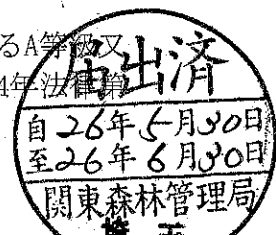 るA等級又
4年法律第
届出済
自26年5月30日
至26年6月30日
関東森林管理局
埼玉